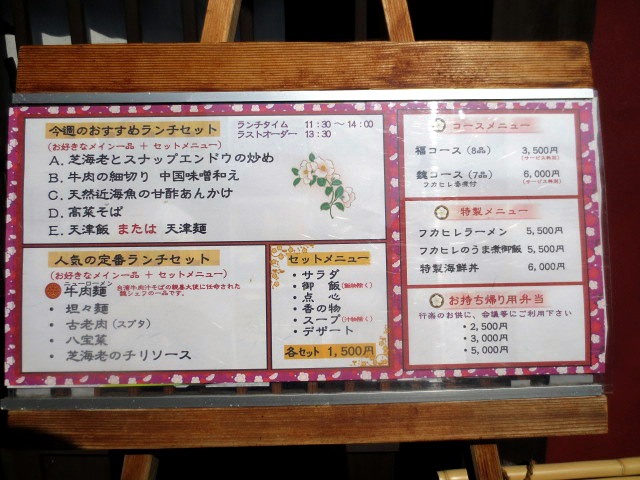 今週のおすすめランチセット
ランチタイム 11:30 ～ 14:00
ラストオーダー 13:30
(お好きなメイン一品 + セットメニュー)
A. 芝海老とスナップエンドウの炒め
B. 牛肉の細切り 中国味噌和え
C. 天然近海魚の甘酢あんかけ
D. 高菜そば
E. 天津飯 または 天津麺
人気の定番ランチセット
(お好きなメイン一品 + セットメニュー)
ニューローメン
牛肉麺
台湾牛肉汁そばの親善大使に任命された
魏シェフの一品です。
・坦々麺
・古老肉(スブタ)
・八宝菜
・芝海老のチリソース
セットメニュー
・サラダ
・御飯(麺飯除く)
・点心
・香の物
・スープ(汁物除く)
・デザート
各セット 1,500円
コースメニュー
福コース (8品) 3,500円
(サービス料別)
魏コース (7品) 6,000円
フカヒレ姿煮付
(サービス料別)
特製メニュー
フカヒレラーメン 5,500円
フカヒレのうま煮御飯 5,500円
特製海鮮丼 6,000円
お持ち帰り用弁当
行楽のお供に、会議等にご利用下さい
・2,500円
・3,000円
・5,000円